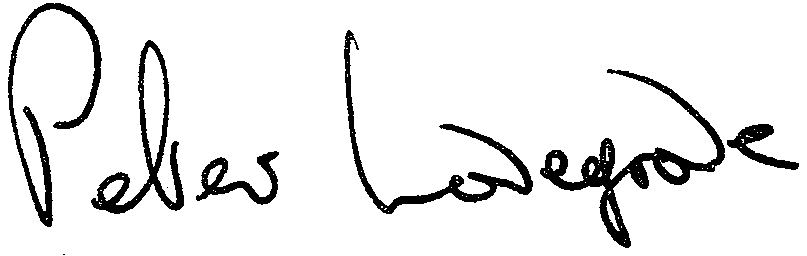 Peter Lovegrove